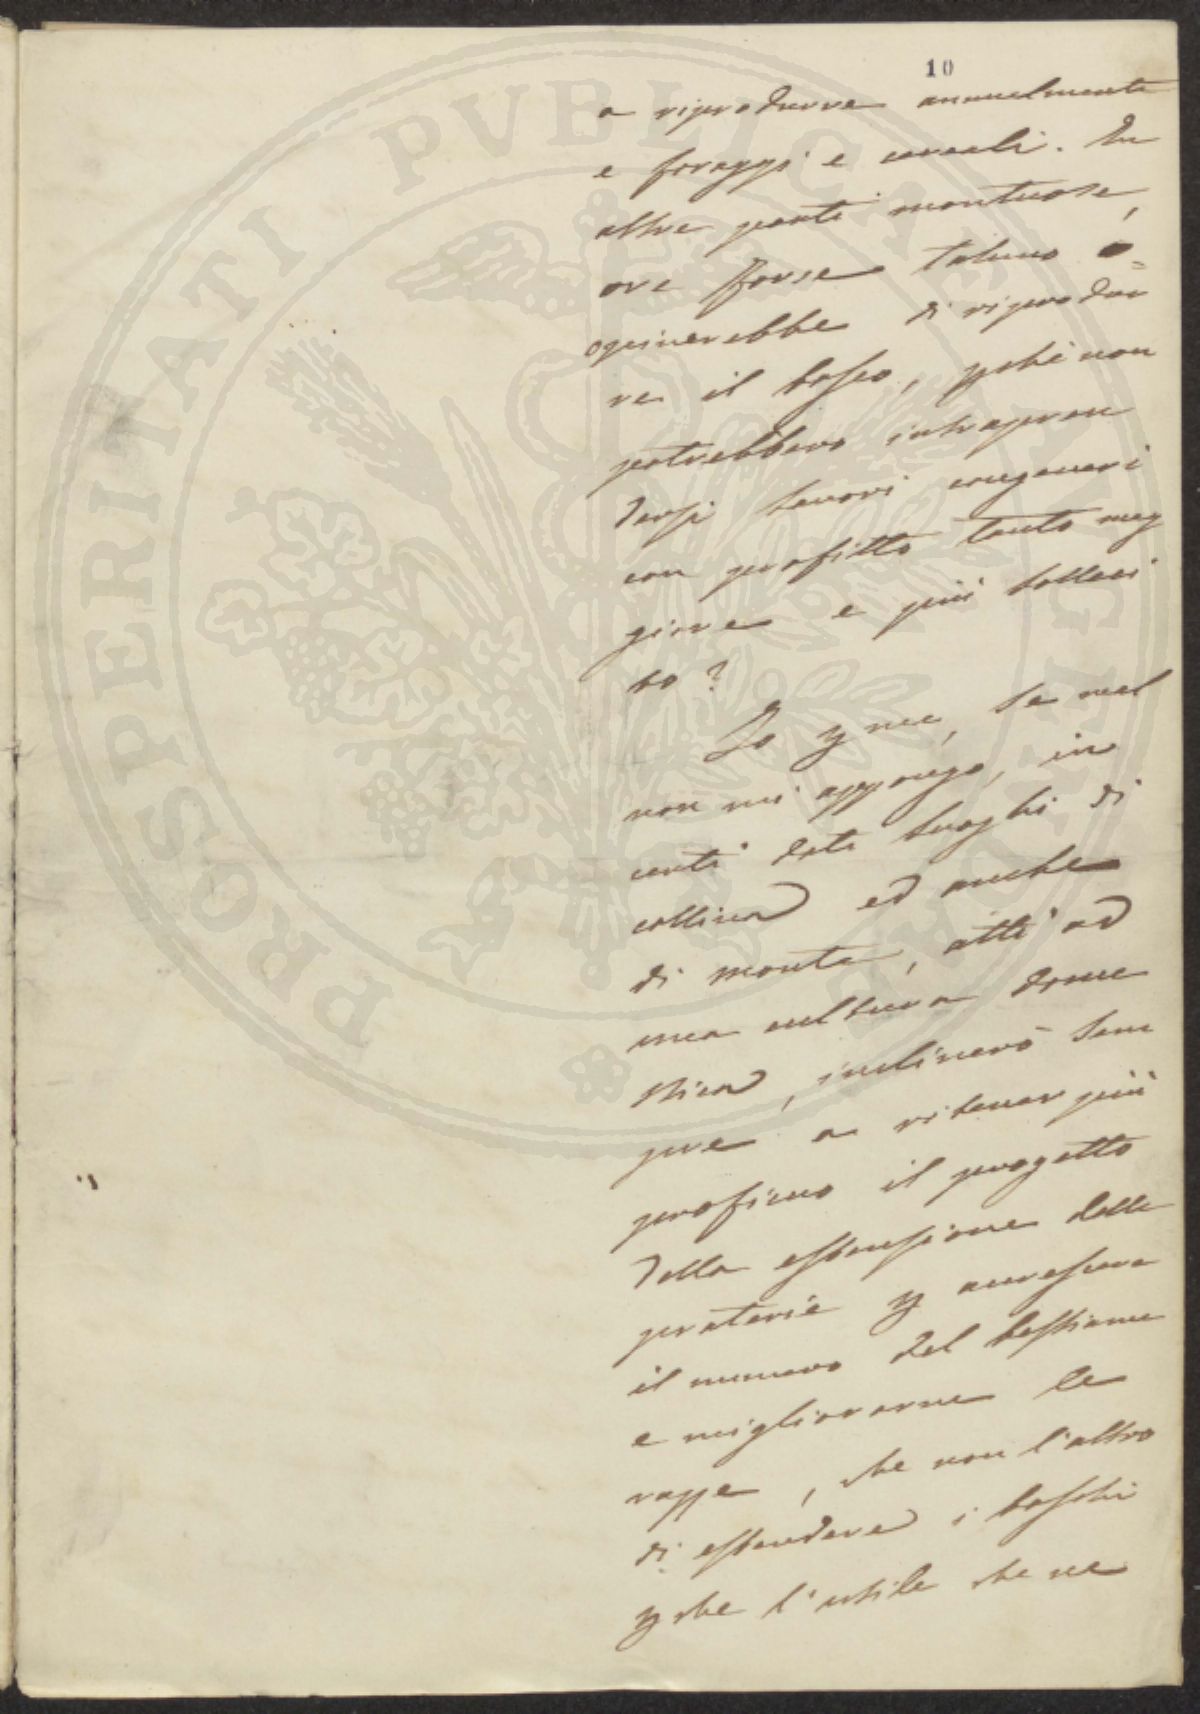 10
a riprodurre annualmente
e foraggi e cereali. In
altre parti montuose,
ove forse taluno o=
opinerebbe di riprodur
re il bosco, pchè non
potrebbero intrapren
dersi lavori congeneri
con profitto tanto mag
giore e più solleci
to?
Io p me, se mal
non mi appongo, in
certi dati luoghi di
collina ed anche
di monte, atti ad
una cultura dome
stica, inclinerò sem
pre a ritener più
proficuo il progetto
della estensione delle
praterie p accrescere
il numero del bestiame
e migliorarne le
razze, che non l'altro
di estendere i boschi
pche l'utile che ne
PROSPERITATI PVBLICAE AVGENDAE